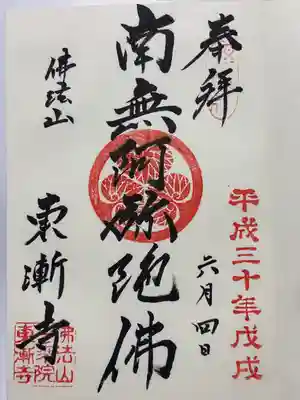 奉拝
平成三十年戊戌
六月四日
南無阿弥陀佛
佛法山
東漸寺
佛法山
院
東漸寺